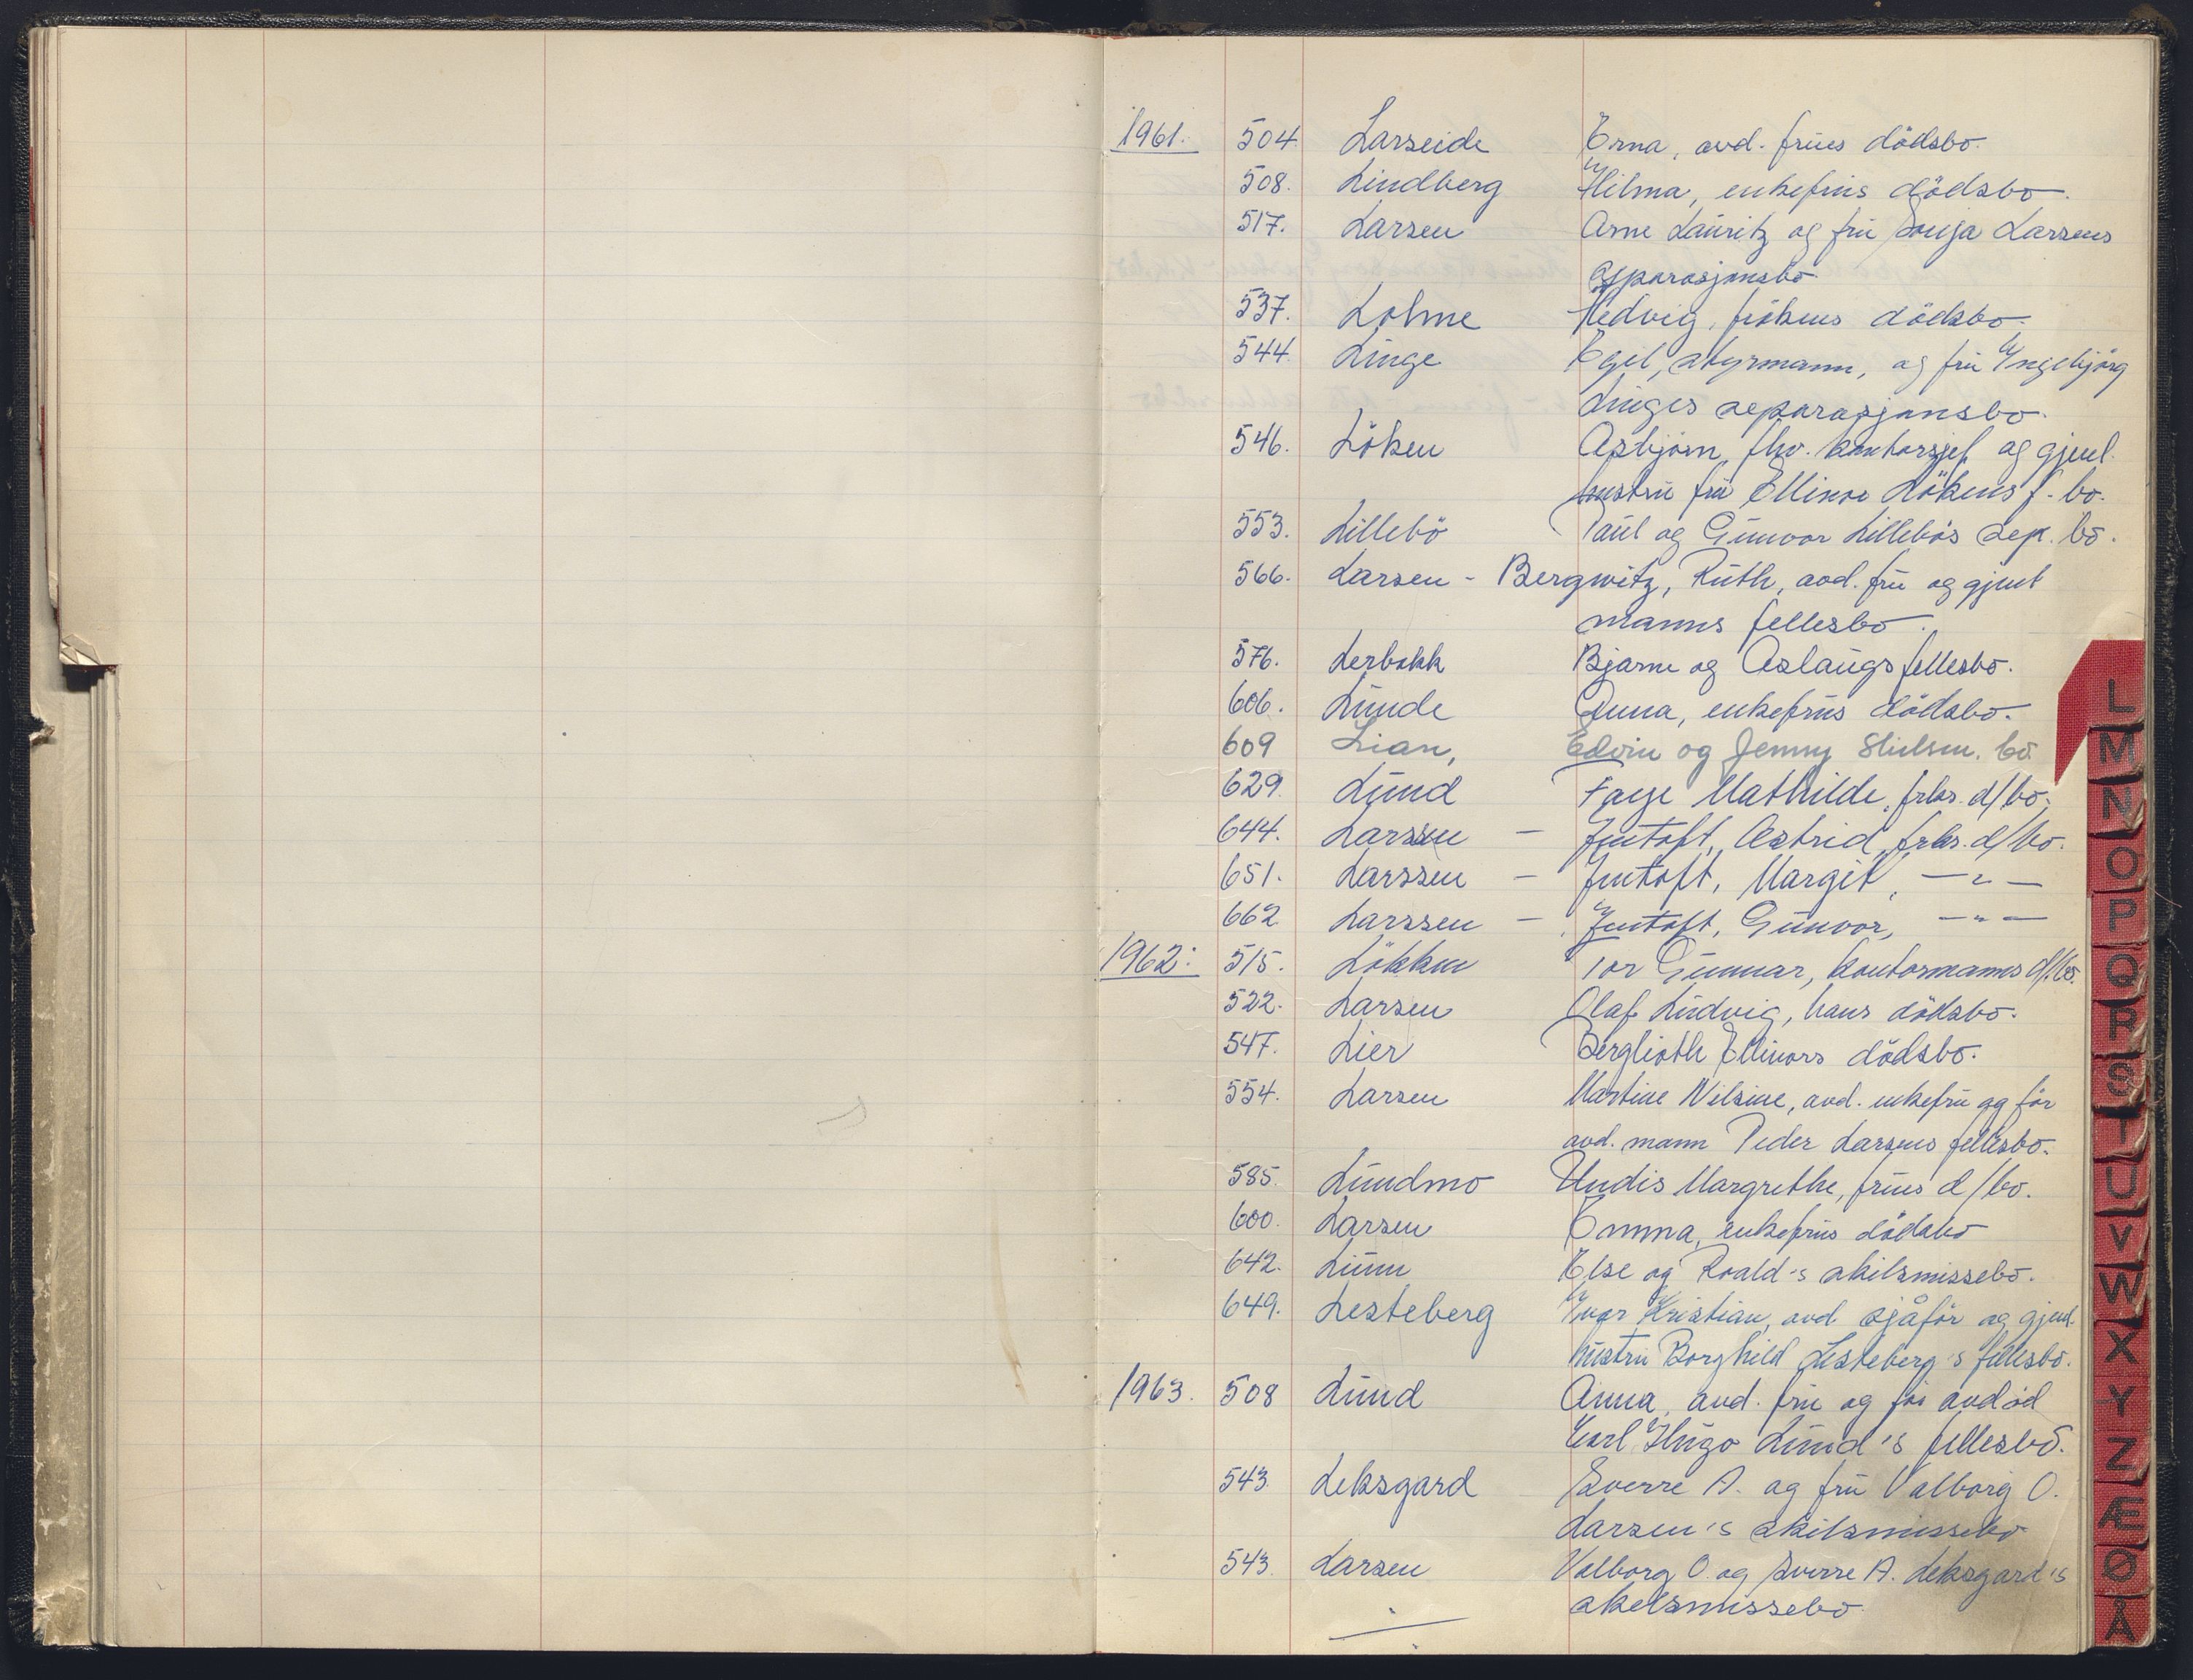 1961. 504 Larseide Erna, avd. frues dödsbo.
508. Lindberg Hilma, enkefrus dödsbo.
517. Larsen Arne Lauritz og fru Sonja Larsens
separasjonsbo
537. Lohne Hedvig, frökens dödsbo.
544. Linge Egil, styrmann, og fru Ingebjörg
Linges separasjonsbo.
546. Löken Asbjörn, fhv. kontorsjef og gjenl.
hustru fru Ellinor Lökens f. bo.
553. Lillebö Paul og Gunvor Lillebö's sep. bo.
566. Larsen - Bergwitz, Ruth, avd. fru og gjenl
manns fellesbo.
576. Lerbakk Bjarne og Aslaugs fellesbo.
606. Lunde Anna, enkefrus dödsbo.
609 Lian, Edvin og Jenny Skilsm. bo.
629. Lund Faye Mathilde, frks. d/bo.
644. Larssen - Jentoft, Astrid, frks. d/bo.
651. Larssen - Jentoft, Margit, — " —
662 Larssen - Jentoft, Gunvor, — " —
1962: 515. Lökken Tor Gunnar, kontormanns d/bo.
522. Larsen Olaf Ludvig, hans dödsbo.
547. Lier Bergliotk Ellinors dödsbo.
554. Larsen Martine Nilsine, avd. enkefru og för
avd. mann Peder Larsens fellesbo.
585. Lundmo Undis Margrethe, frues d/bo.
600. Larsen Emma, enkefrus dödsbo
642. Lunn Else og Roald's skilsmissebo.
649. Lesteberg Ivar Kristian, avd sjåför og gjenl.
hustru Borghild Lesteberg's fellesbo.
1963. 508 Lund Anna, avd. fru og för avdöd
Karl Hugo Lund's fellesbo.
543. Leksgard Sverre A. og fru Valborg O.
Larsen's skilsmissebo
543. Larsen Valborg O. og Sverre A. Leksgard's
skilsmissebo
L
M
N
O
P
Q
R
S
T
U
V
W
X
Y
Z
Æ
Ø
Å